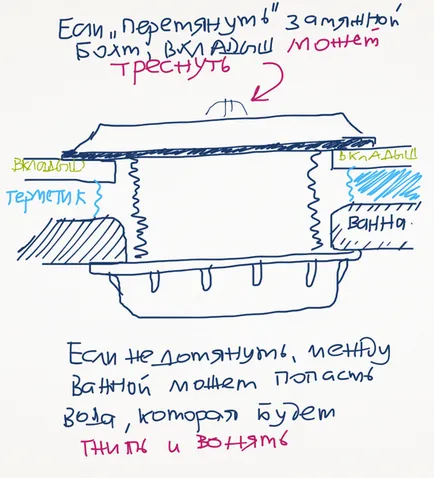 Если „перетянуть" затяжной
болт, вкладыш может
треснуть
вкладыш
вкладыш
герметик
ванна.
Если не дотянуть, между
ванной может попасть
вода, которая будет
гнить и вонять